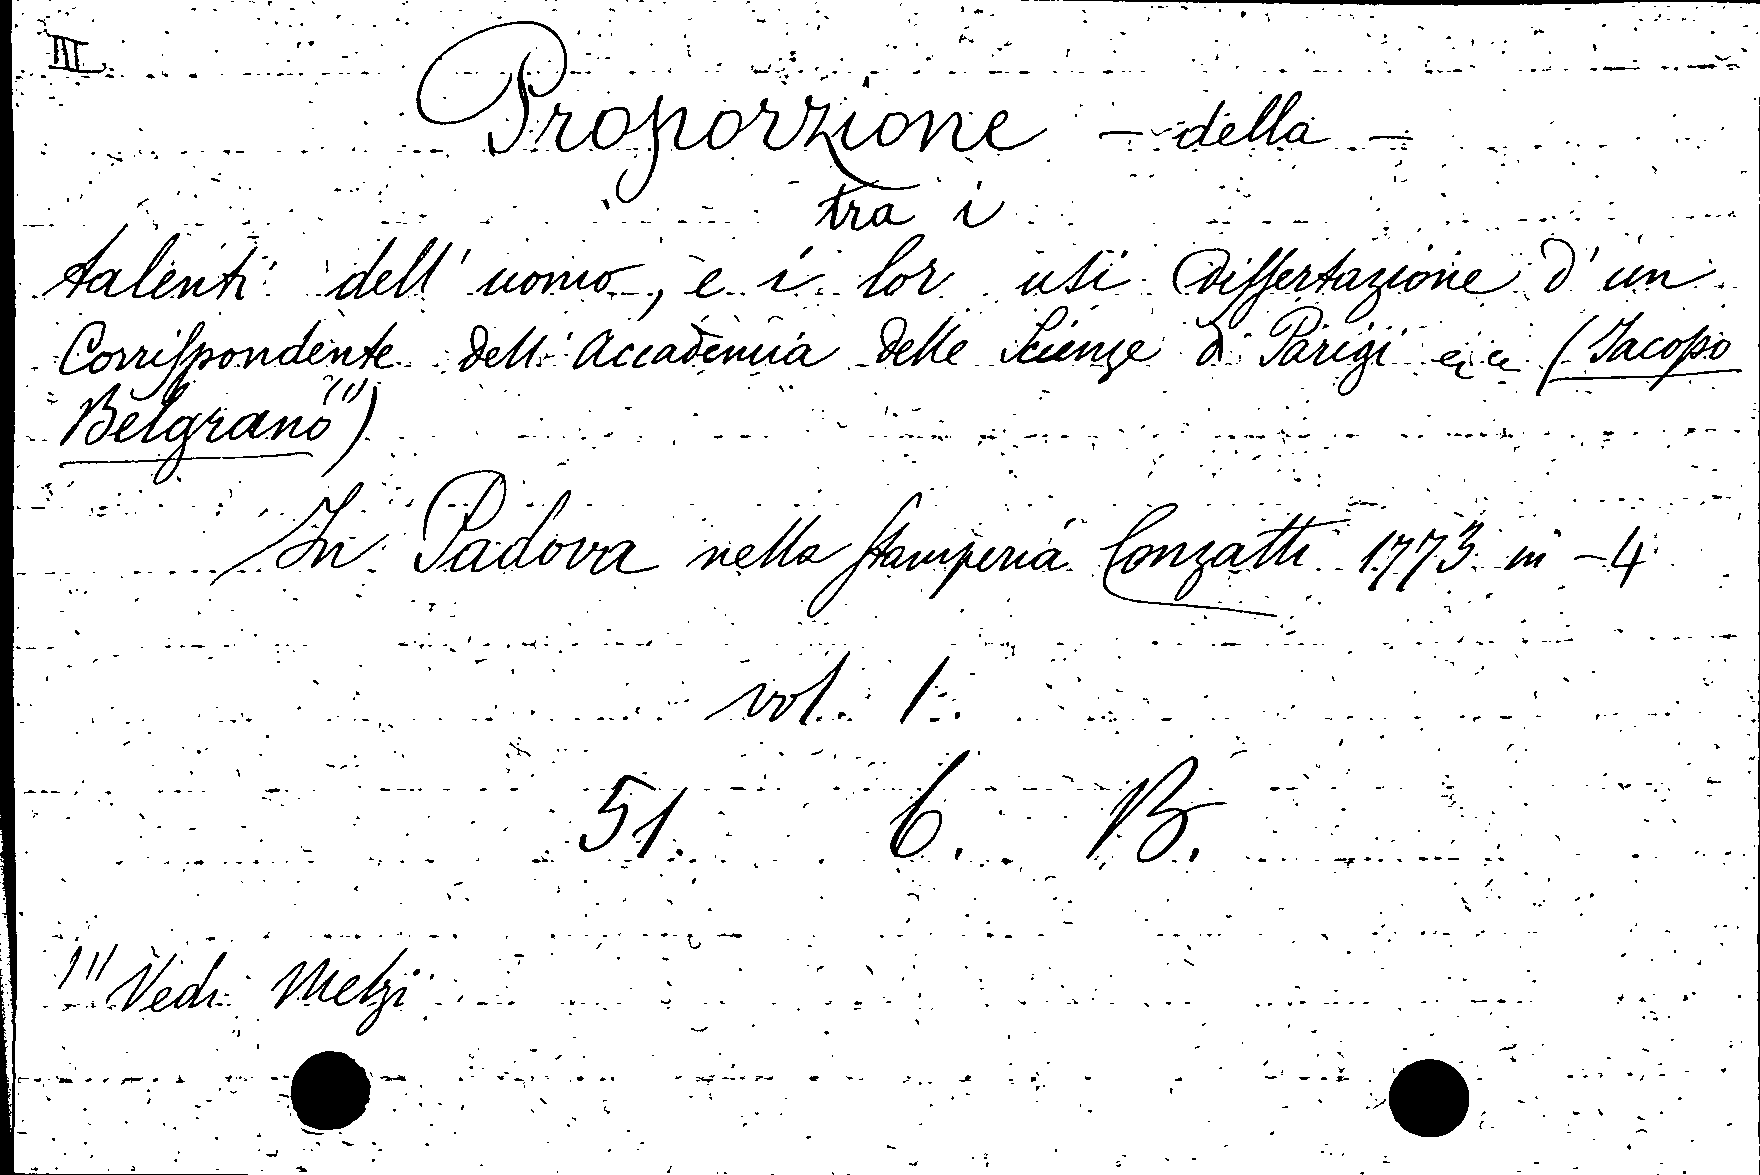 III
Proporzione - della -
tra i
talenti dell'uomo, e i lor usi Dissertazione d'un
Corrispondente dell'Accademia delle Scienze di Parigi ec. ec. (Jacopo
Belgrano (1))
In Padova nella Stamperia Conzatti 1773 in-4
vol. 1.
51. 6. B.
(1) Vedi Melzi